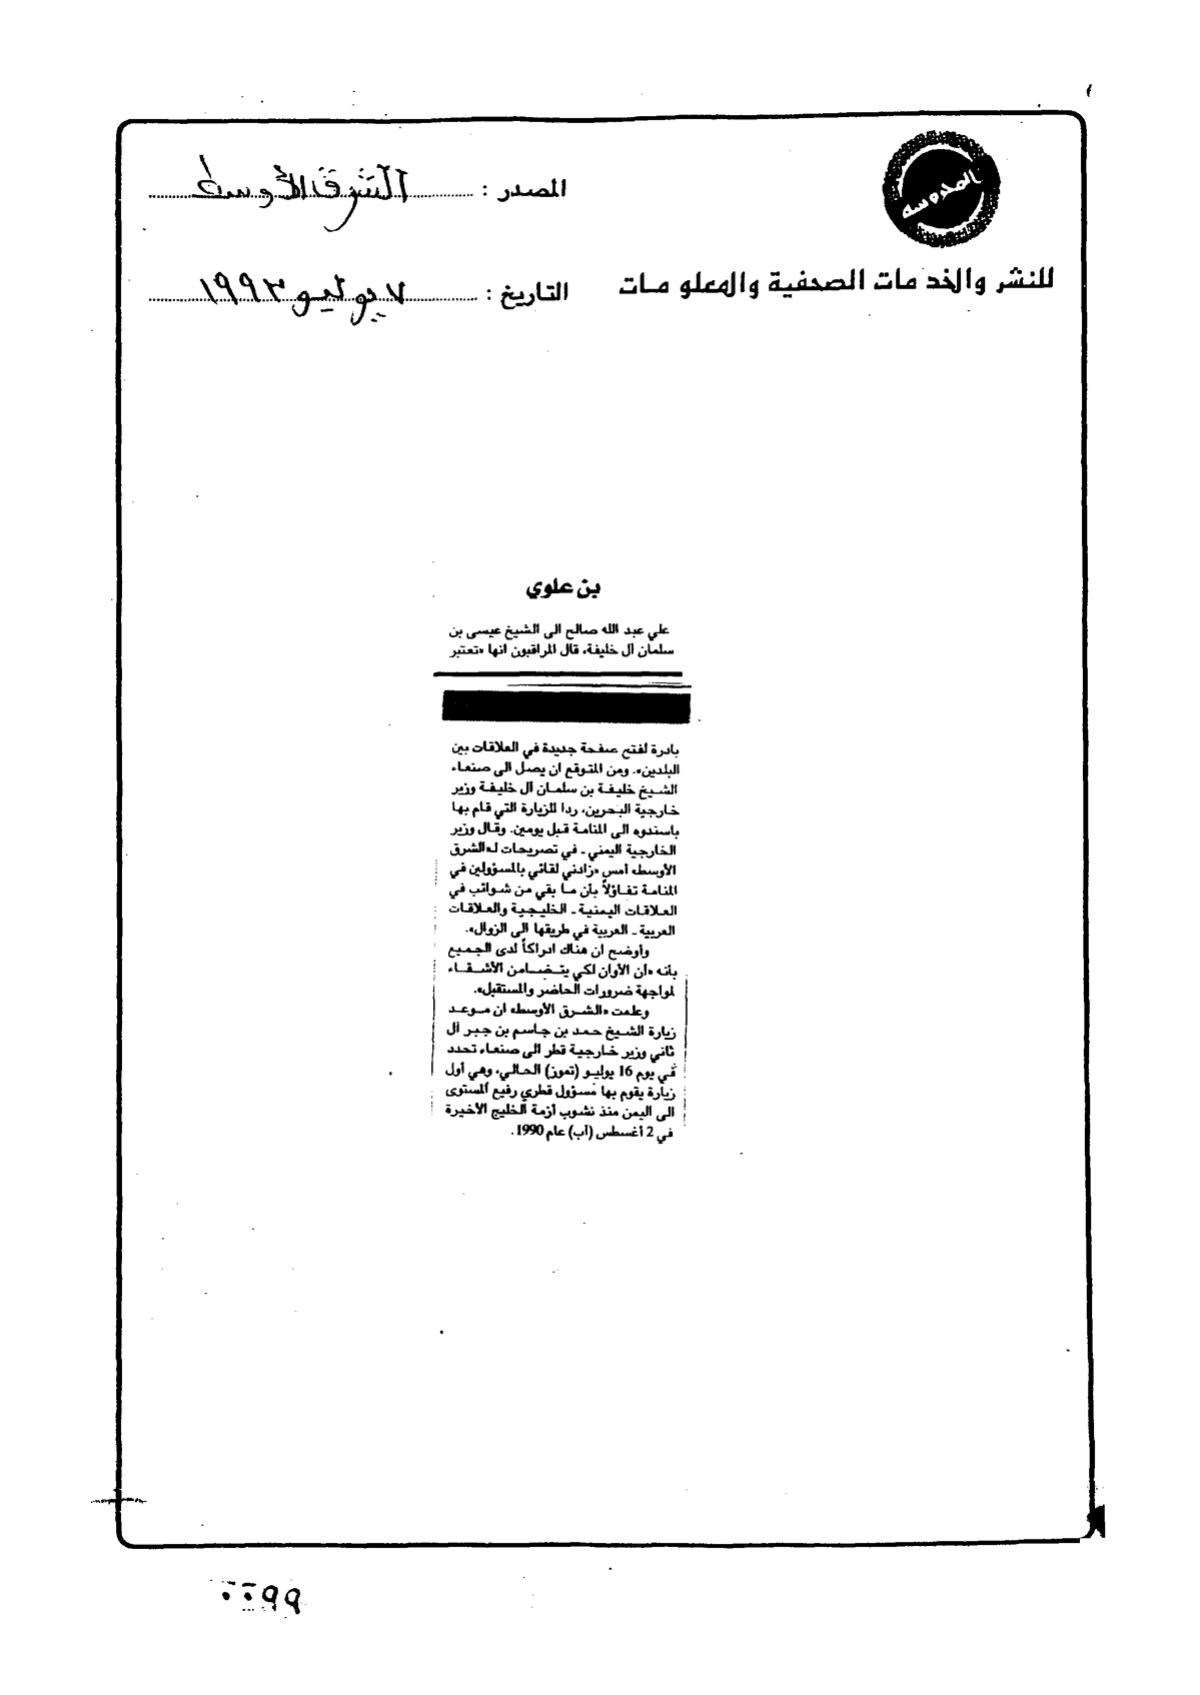 المصدر : الشرق الأوسط
للنشر والخدمات الصحفية والمعلومات
التاريخ : ٧ يوليو ١٩٩٣
بن علوي
علي عبد الله صالح الى الشيخ عيسى بن
سلمان آل خليفة، قال المراقبون انها «تعتبر
بادرة لفتح صفحة جديدة في العلاقات بين
البلدين». ومن المتوقع ان يصل الى صنعاء
الشيخ خليفة بن سلمان آل خليفة وزير
خارجية البحرين، ردا للزيارة التي قام بها
باسندوه الى المنامة قبل يومين. وقال وزير
الخارجية اليمني ـ في تصريحات لـ«الشرق
الأوسط» أمس «زادني لقائي بالمسؤولين في
المنامة تفاؤلاً بأن ما بقي من شوائب في
العلاقات اليمنية ـ الخليجية والعلاقات
العربية ـ العربية في طريقها الى الزوال».
وأوضح ان هناك ادراكاً لدى الجميع
بانه «آن الأوان لكي يتضامن الأشقاء
لمواجهة ضرورات الحاضر والمستقبل».
وعلمت «الشرق الأوسط» ان موعد
زيارة الشيخ حمد بن جاسم بن جبر آل
ثاني وزير خارجية قطر الى صنعاء تحدد
في يوم 16 يوليو (تموز) الحالي، وهي أول
زيارة يقوم بها مسؤول قطري رفيع المستوى
الى اليمن منذ نشوب أزمة الخليج الأخيرة
في 2 أغسطس (آب) عام 1990.
٠٠٩٩